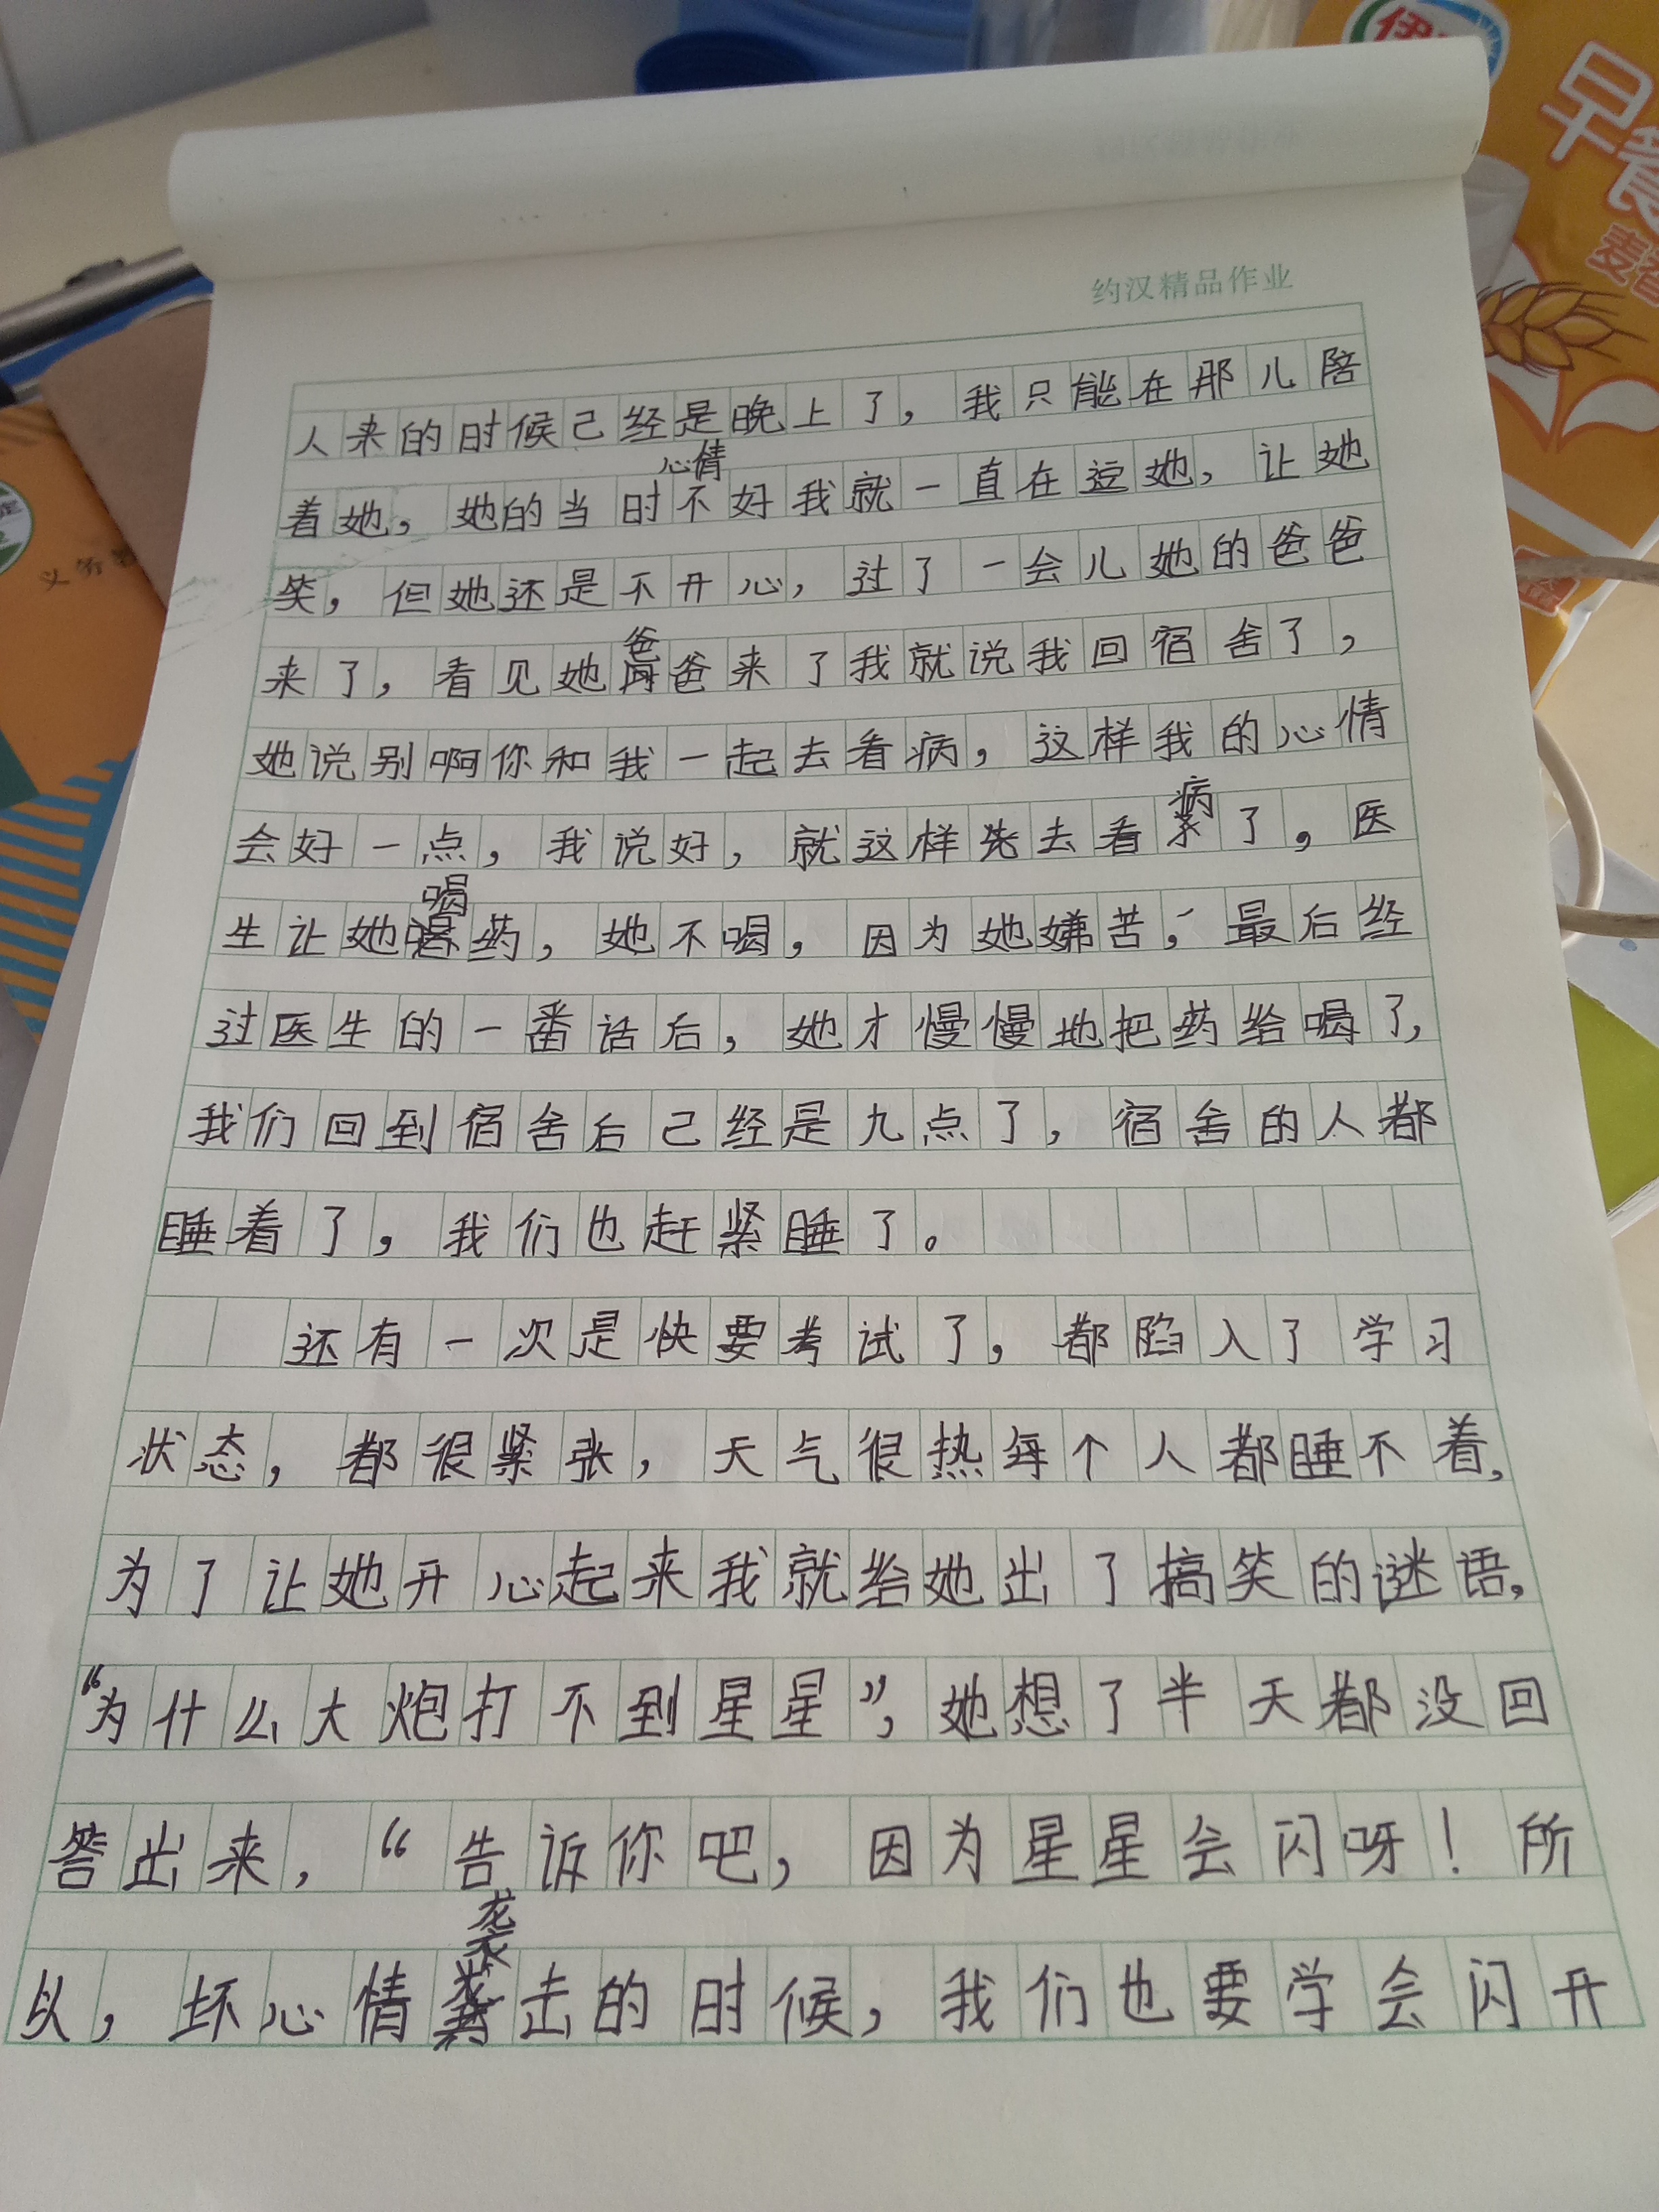 伊
早餐
麦香
义务教
约汉精品作业
人来的时候己经是晚上了，我只能在那儿陪
着她，她的当时心情不好我就一直在逗她，让她
笑，但她还是不开心，过了一会儿她的爸爸
来了，看见她爸爸来了我就说我回宿舍了，
她说别啊你和我一起去看病，这样我的心情
会好一点，我说好，就这样先去看病了，医
生让她喝药，她不喝，因为她嫌苦，最后经
过医生的一番话后，她才慢慢地把药给喝了，
我们回到宿舍后己经是九点了，宿舍的人都
睡着了，我们也赶紧睡了。
还有一次是快要考试了，都陷入了学习
状态，都很紧张，天气很热每个人都睡不着，
为了让她开心起来我就给她出了搞笑的谜语，
“为什么大炮打不到星星”，她想了半天都没回
答出来，“告诉你吧，因为星星会闪呀！所
以，坏心情袭击的时候，我们也要学会闪开